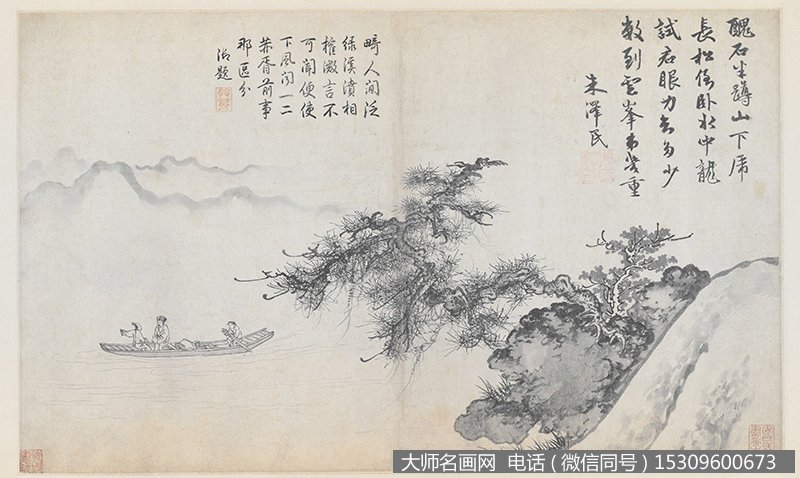 醜石半蹲山下虎
長松倒卧水中龍
試君眼力知多少
數到雲峯第幾重
朱澤民
疇人閒泛
綠溪濆相
榷微言不
可聞便使
下風聞一二
華胥前事
那區分
御題
大师名画网 电话（微信同号）15309600673